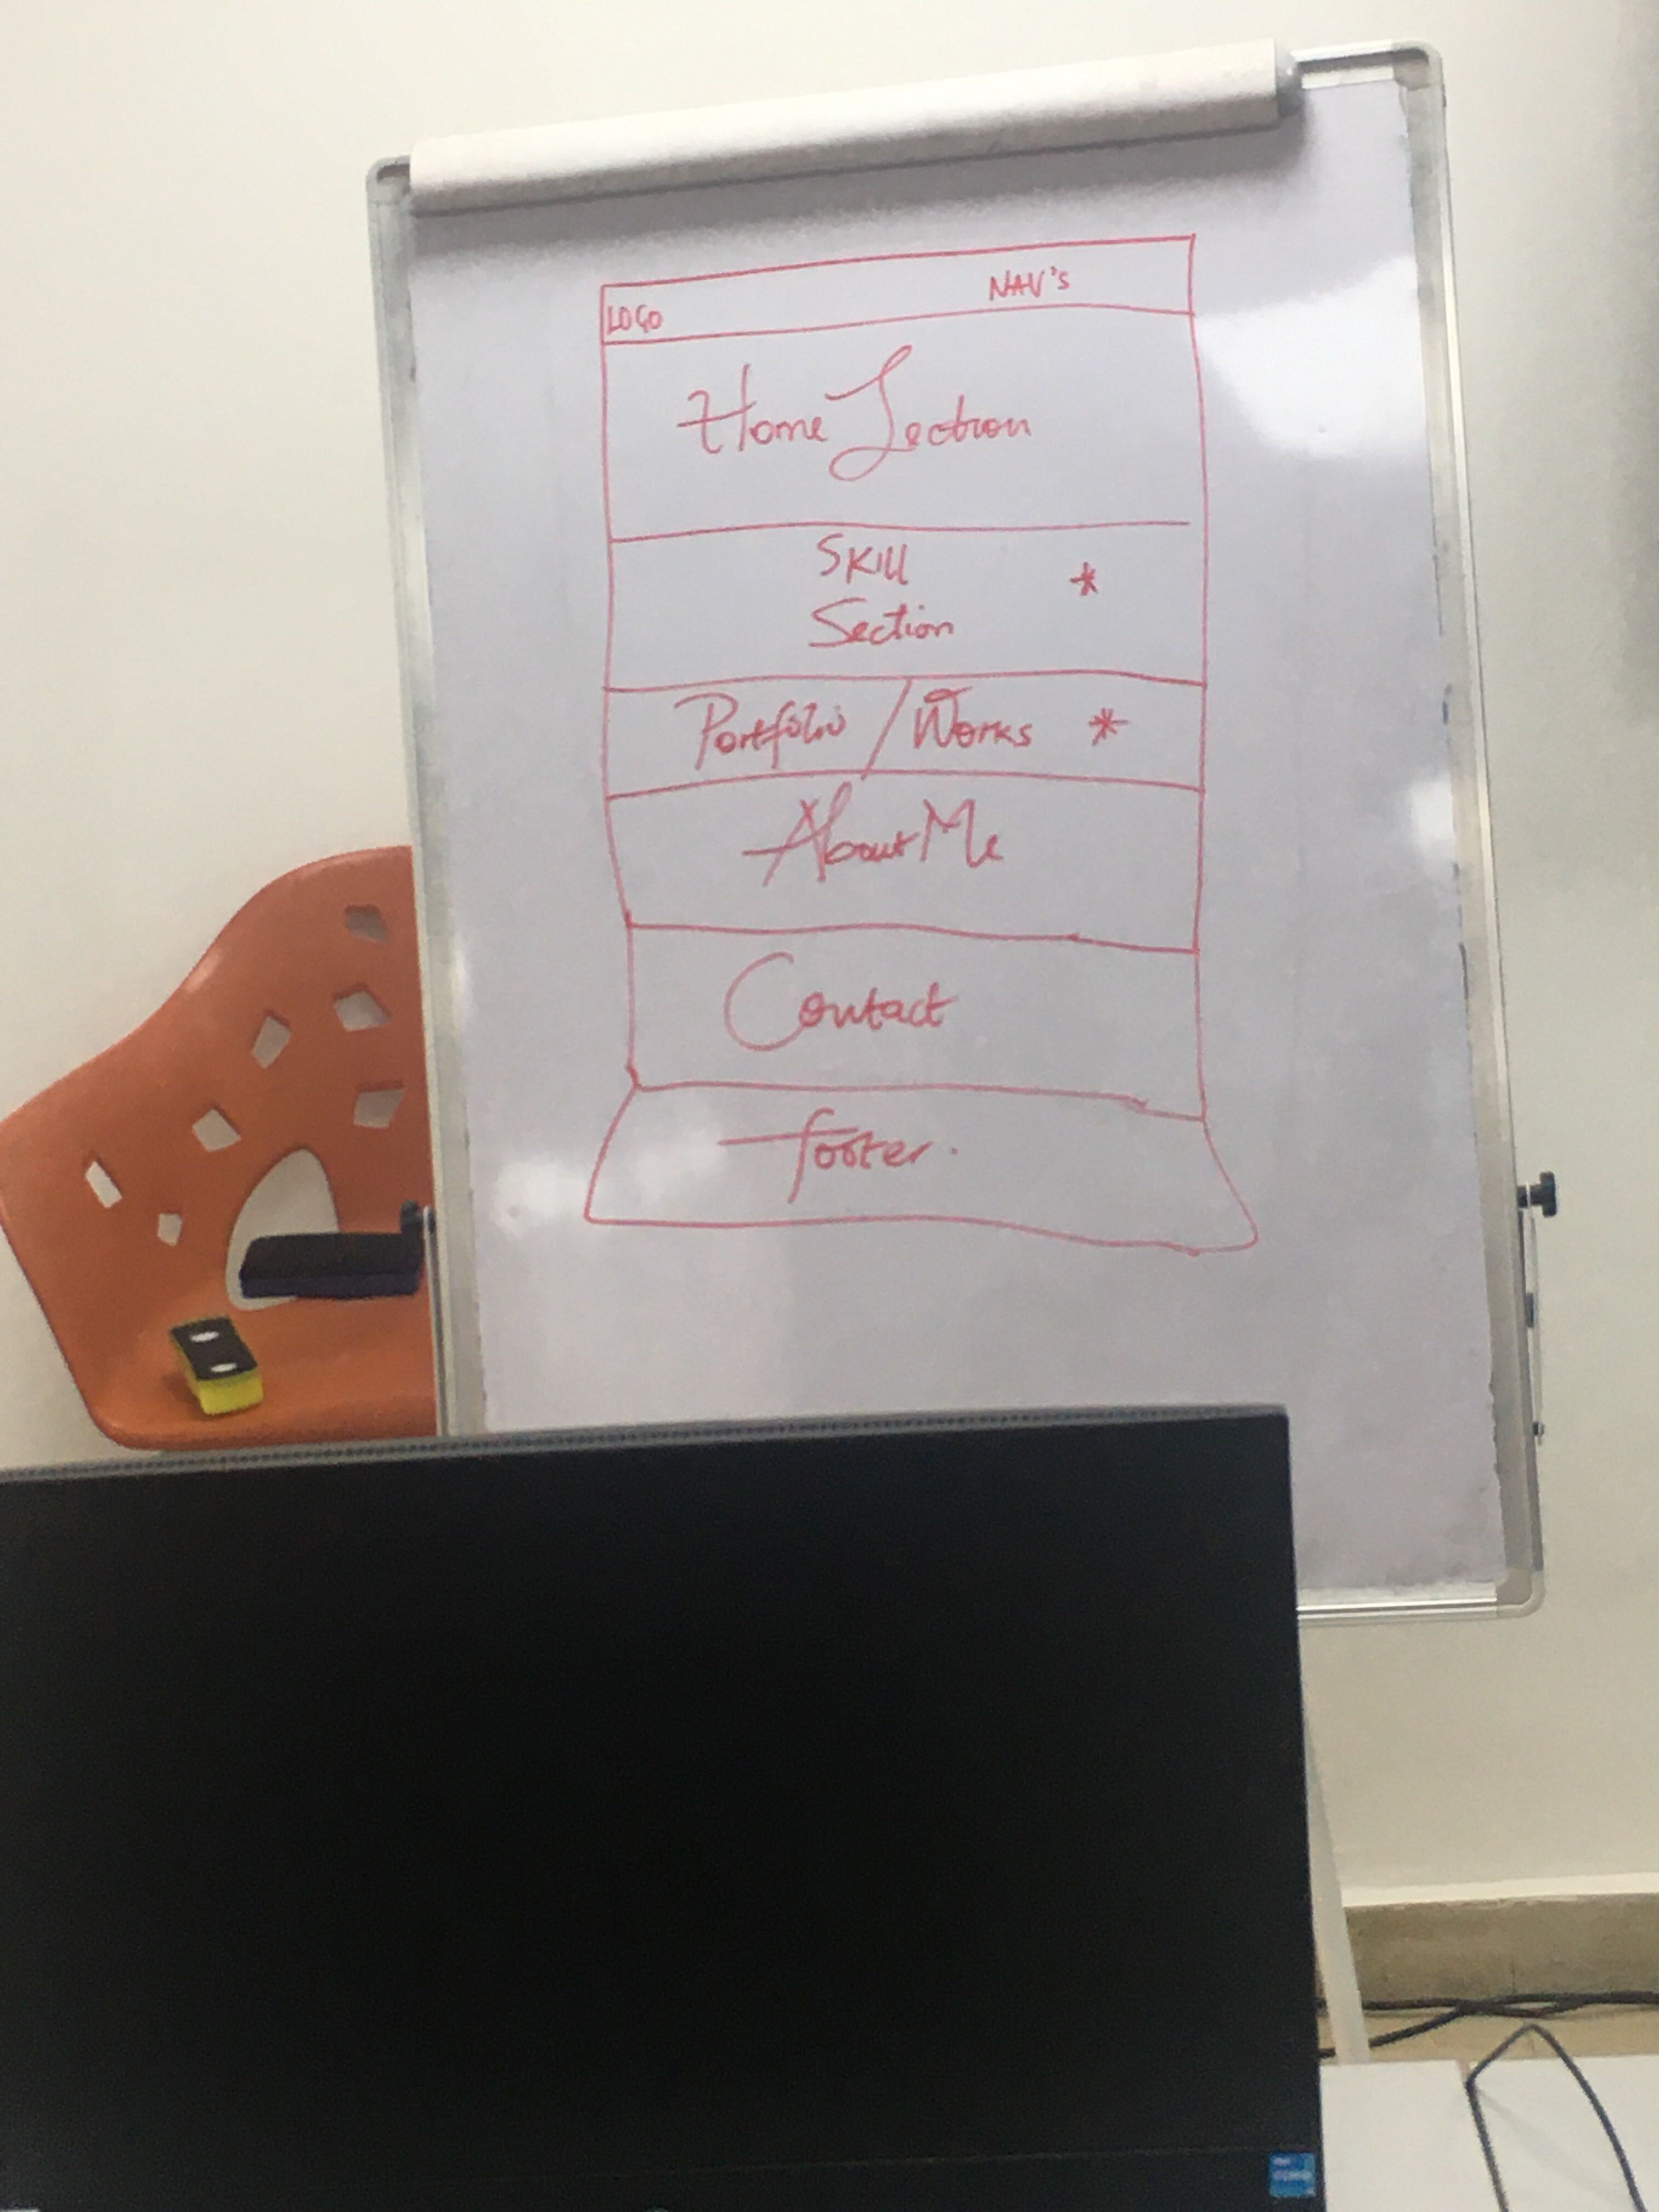 LOGO NAV's
Home Section
SKILL *
Section
Portfolio / Works *
About Me
Contact
footer.